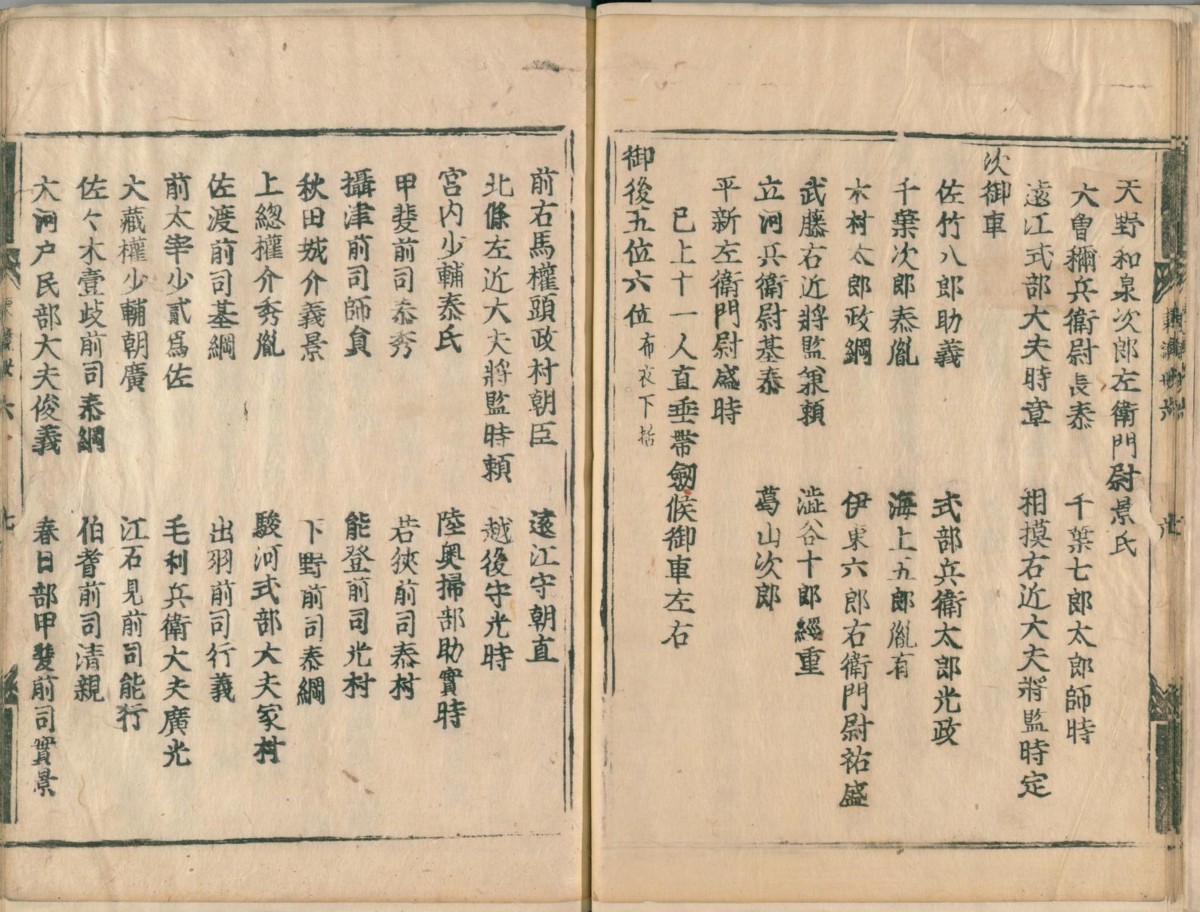 天野和泉次郎左衛門尉景氏
大曽禰兵衛尉長泰 千葉七郎太郎師時
遠江式部大夫時章 相摸右近大夫將監時定
次御車
佐竹八郎助義 式部兵衛太郎光政
千葉次郎泰胤 海上五郎胤有
木村太郎政綱 伊東六郎右衛門尉祐盛
武藤右近將監兼頼 澁谷十郎經重
立河兵衛尉基泰 葛山次郎
平新左衛門尉盛時
已上十一人直垂帶劔候御車左右
御後五位六位 布衣下括
前右馬權頭政村朝臣 遠江守朝直
北條左近大夫將監時頼 越後守光時
宮内少輔泰氏 陸奥掃部助實時
甲斐前司泰秀 若狹前司泰村
攝津前司師員 能登前司光村
秋田城介義景 下野前司泰綱
上總權介秀胤 駿河式部大夫家村
佐渡前司基綱 出羽前司行義
前太宰少貳爲佐 毛利兵衛大夫廣光
大藏權少輔朝廣 江石見前司能行
佐々木壹歧前司泰綱 伯耆前司清親
大河戸民部大夫俊義 春日部甲斐前司實景